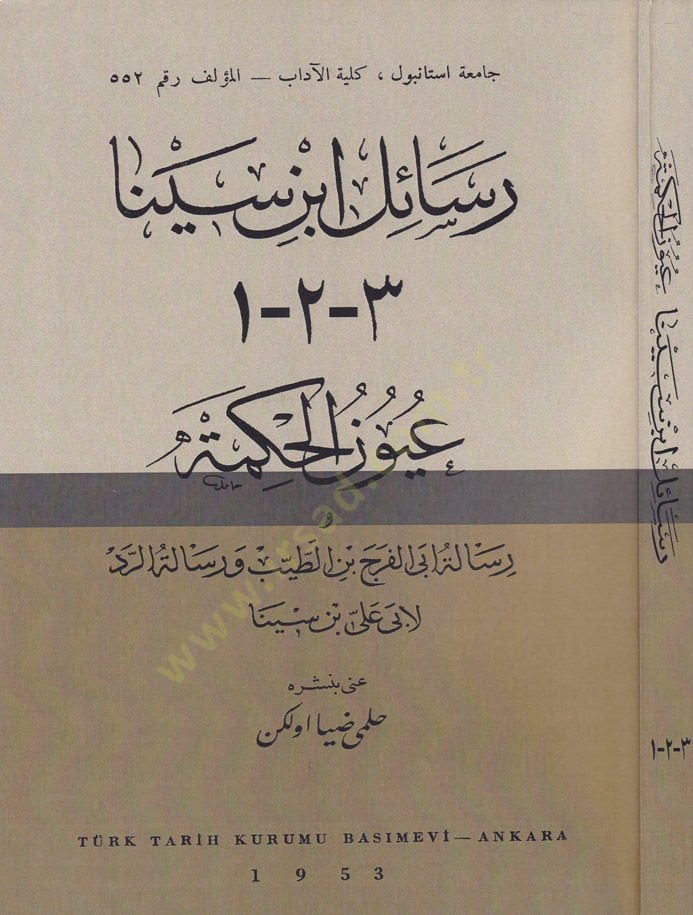 جامعة استانبول ، كلية الآداب — المؤلف رقم ٥٥٢
رَسَائِل ابْنِ سَيْنَا
٣-٢-١
عُيُونُ الحِكْمَةِ
حامد
و
رِسَالَةُ ابى الفَرَجَ بْنِ الطَّيِّبْ وَرِسَالَةُ الرَّدّ
لابى عَلىّ بْن سِينَا
عنى بنشره
حلمى ضيا اولكن
TÜRK TARİH KURUMU BASIMEVİ — ANKARA
1953
رَسَائِل ابْنِ سَيْنَا عُيُونُ الحِكْمَةِ
٣-٢-١